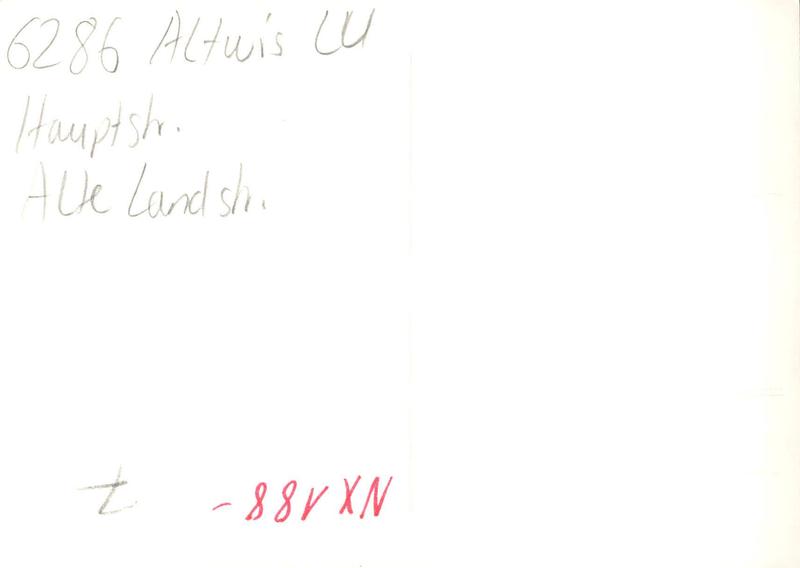 6286 Altwis LU
Hauptstr.
Alte Landstr.